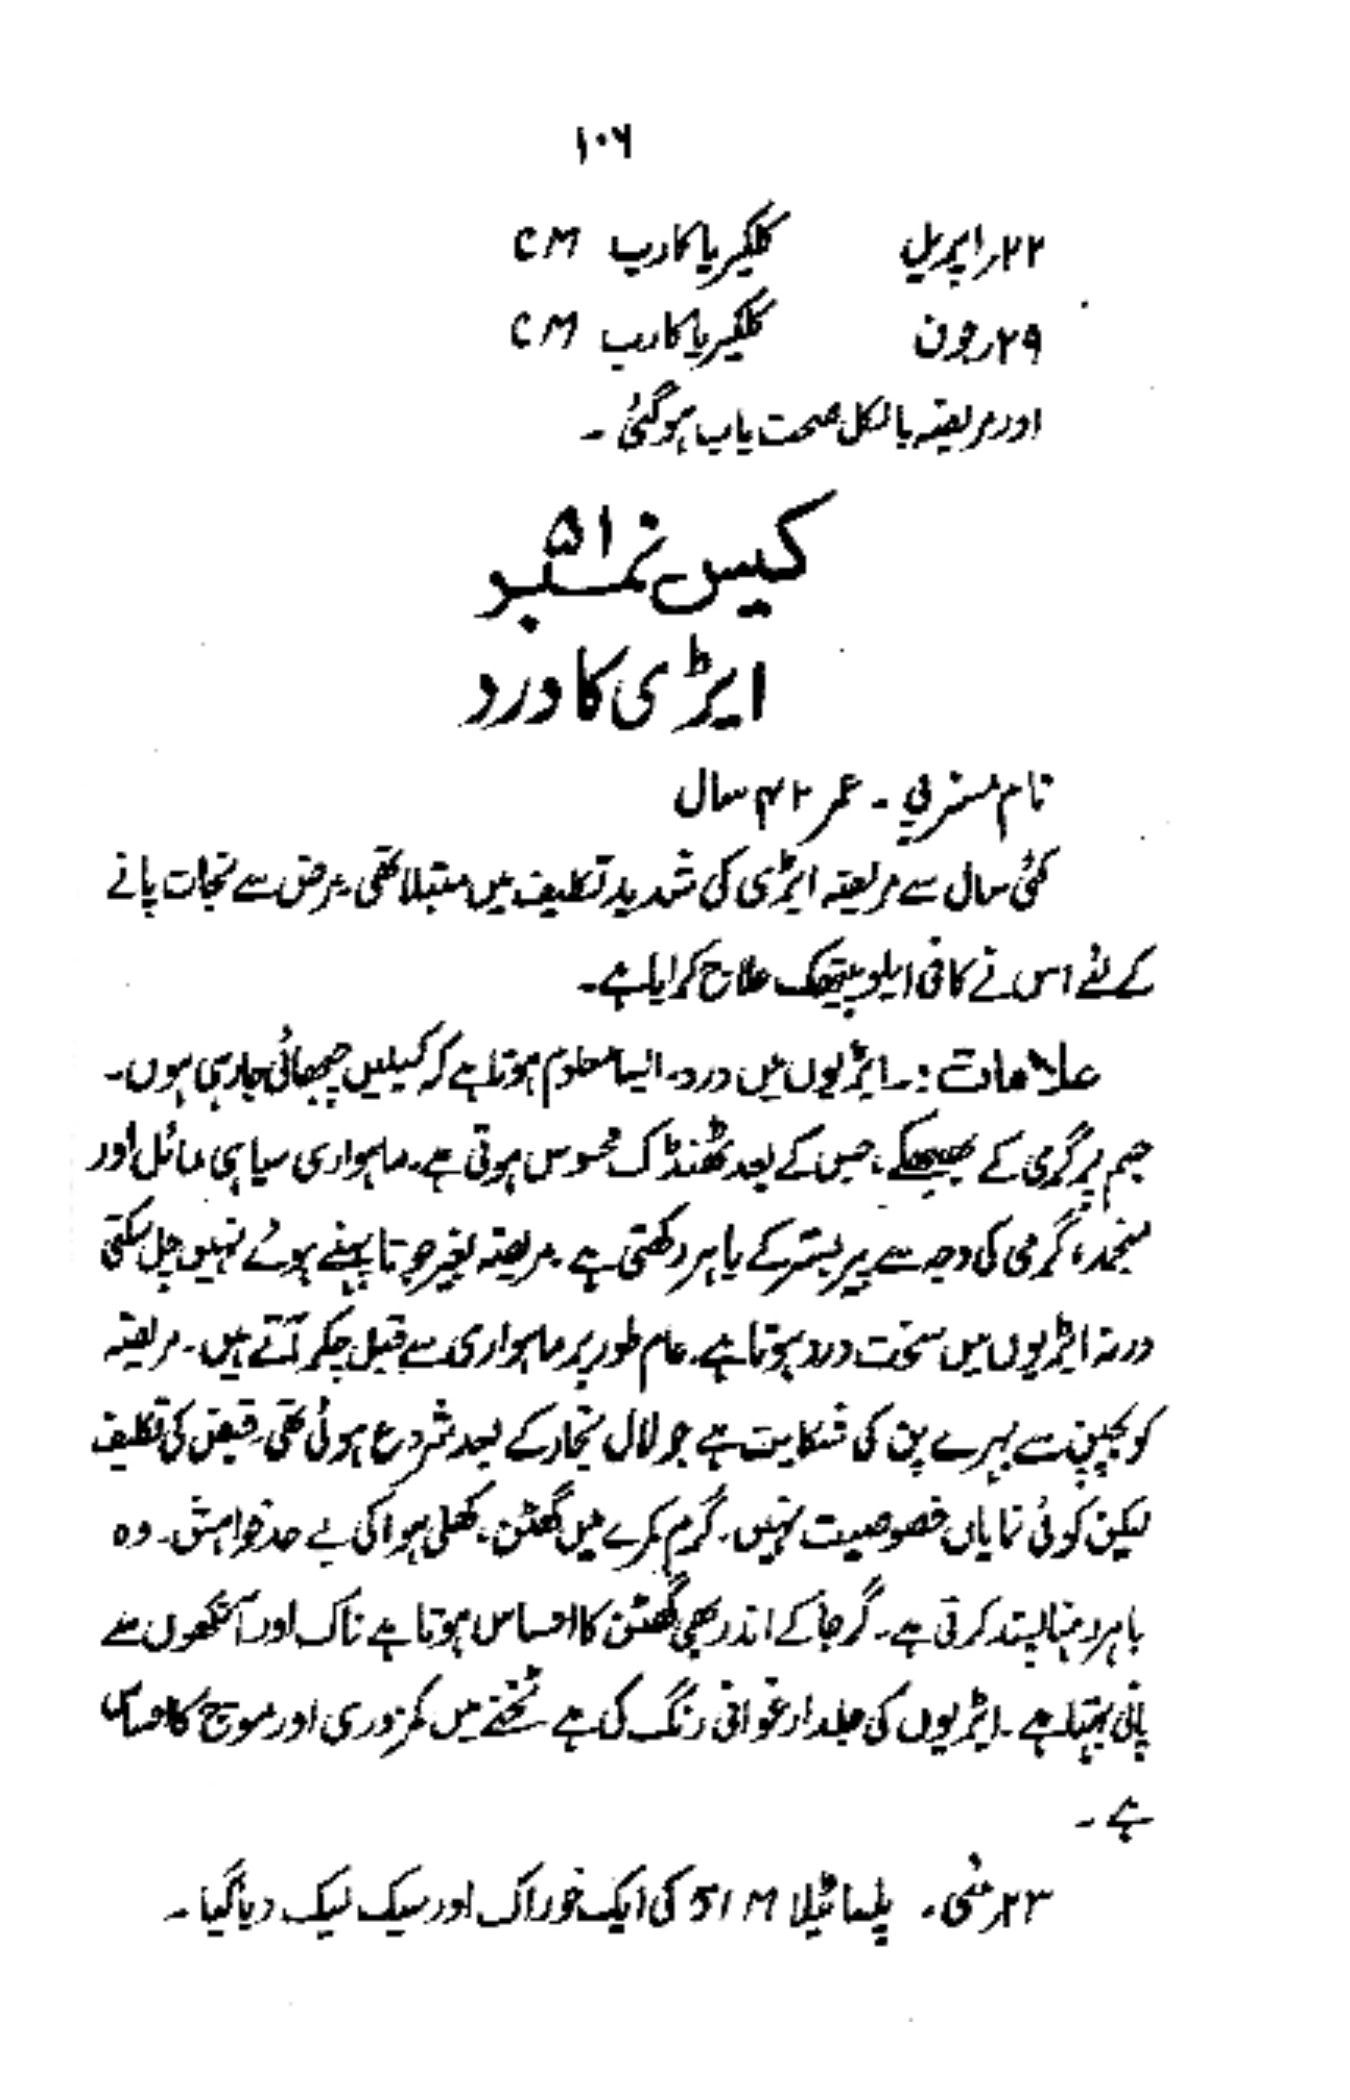 ۱۰۶
۲۲؍اپریل کلکیریا کارب CM
۲۹؍جون کلکیریا کارب CM
اور مریضہ بالکل صحت یاب ہوگئی ۔
کیس نمبر ۵۱
ایڑی کا درد
نام مسز پی ۔ عمر ۴۲ سال
کئی سال سے مریضہ ایڑی کی شدید تکلیف میں مبتلا تھی۔ مرض سے نجات پانے
کے لئے اس نے کافی ایلوپیتھک علاج کرایا ہے۔
علامات :۔ ایڑیوں میں درد۔ ایسا معلوم ہوتا ہے کہ کیلیں چبھائی جارہی ہوں۔
جسم پر گرمی کے بھبھکے، جس کے بعد ٹھنڈک محسوس ہوتی ہے۔ ماہواری سیاہی مائل اور
منجمد، گرمی کی وجہ سے پیر بستر کے باہر رکھتی ہے۔ مریضہ بغیر جوتا پہنے ہوئے نہیں چل سکتی
ورنہ ایڑیوں میں سخت درد ہوتا ہے۔ عام طور پر ماہواری سے قبل چکر آتے ہیں۔ مریضہ
کو بچپن سے بہرے پن کی شکایت ہے جو لال بخار کے بعد شروع ہوئی تھی۔ قبض کی تکلیف
لیکن کوئی نمایاں خصوصیت نہیں۔ گرم کمرے میں گھٹن۔ کھلی ہوا کی بے حد خواہش۔ وہ
باہر رہنا پسند کرتی ہے۔ گرجا کے اندر بھی گھٹن کا احساس ہوتا ہے ناک اور آنکھوں سے
پانی بہتا ہے۔ ایڑیوں کی جلد ارغوانی رنگ کی ہے ٹخنے میں کمزوری اور موچ کا احساس
ہے ۔
۲۳؍مئی۔ پلساٹیلا 51M کی ایک خوراک اور سیک لیک دیا گیا ۔